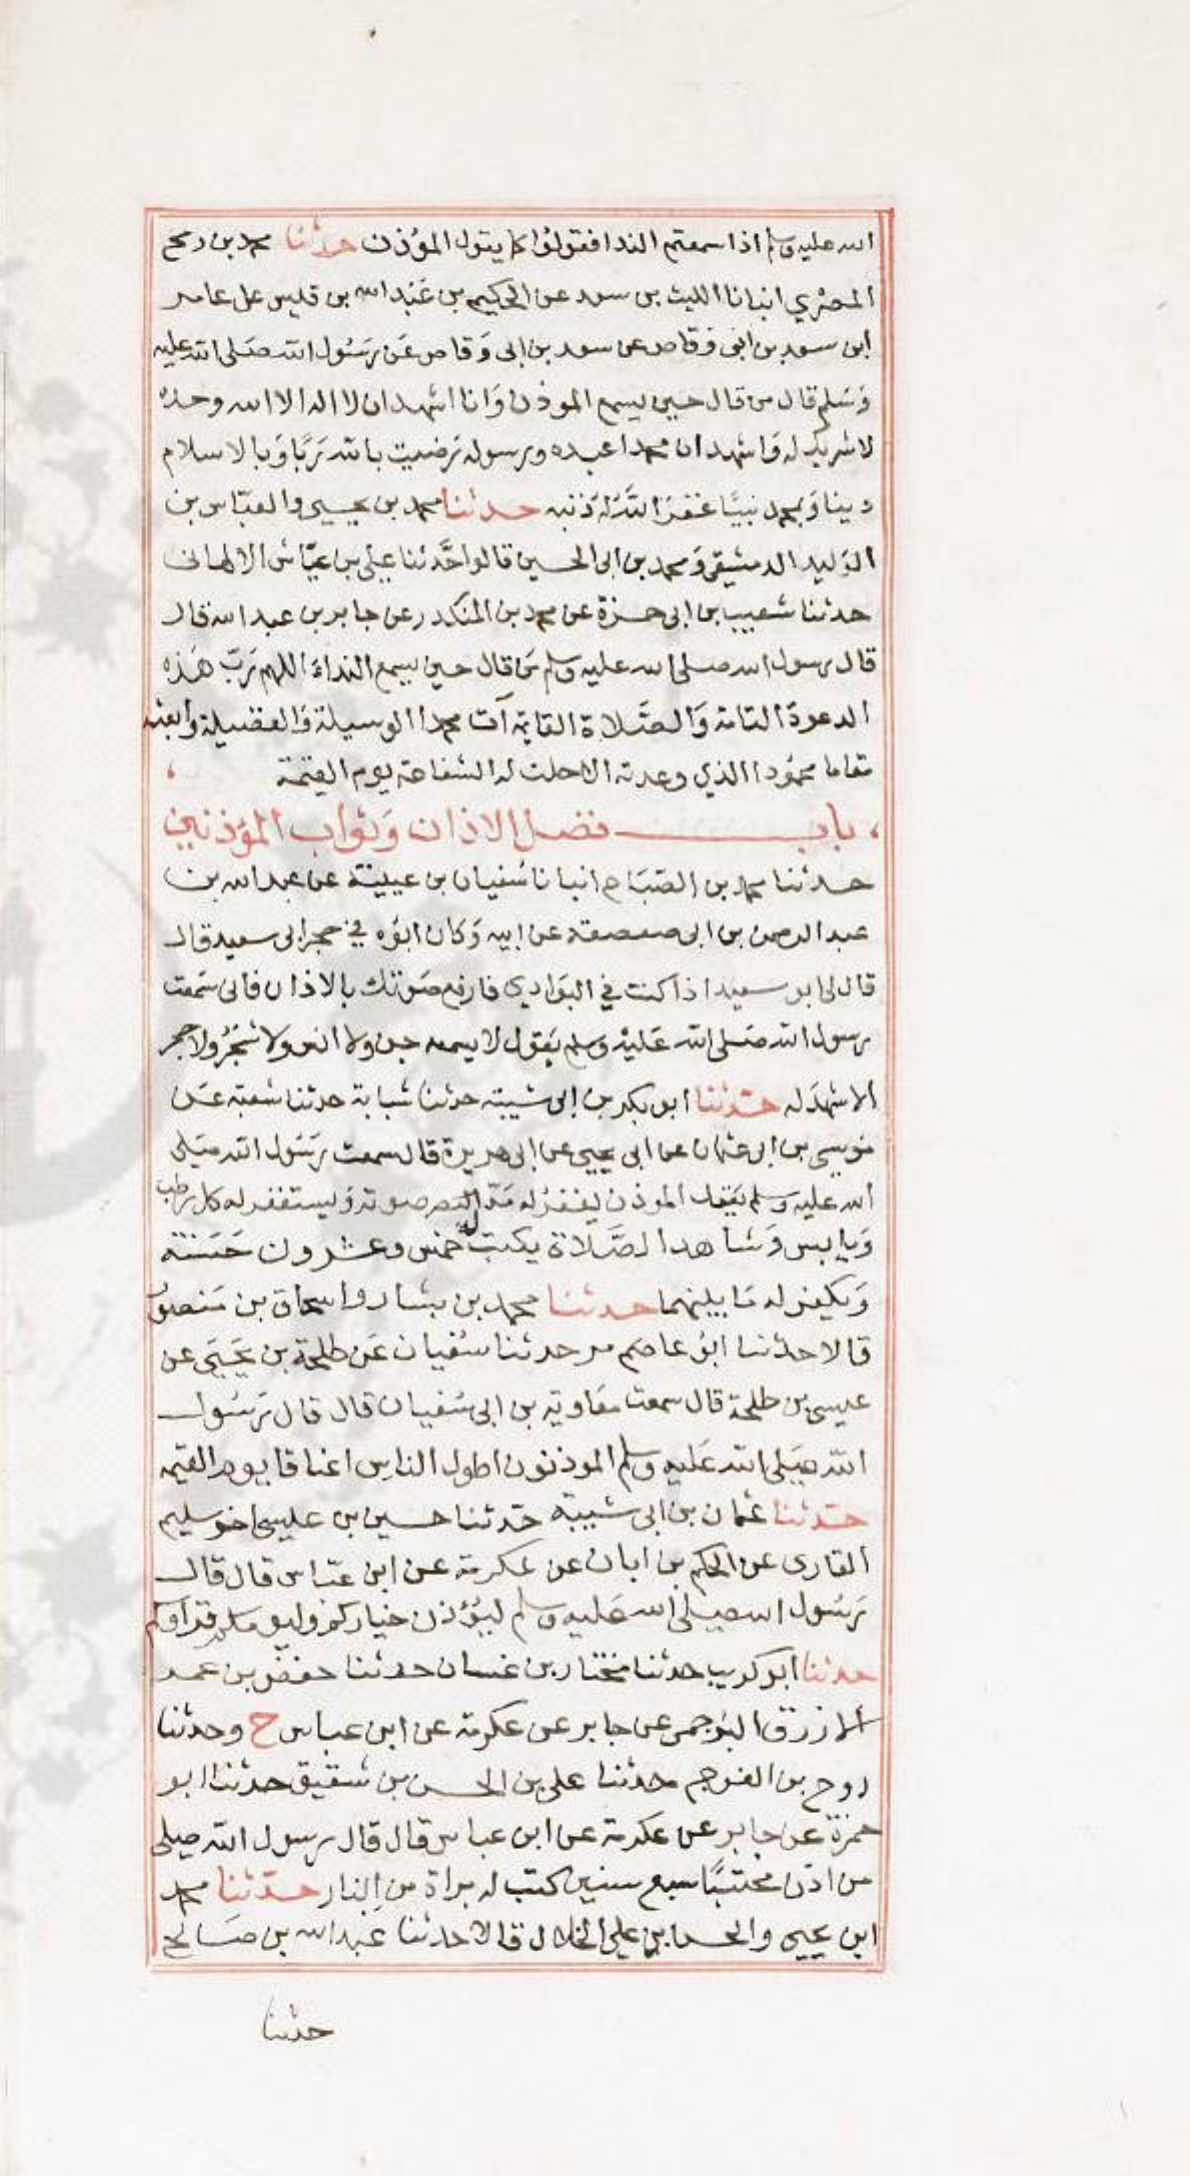 الله عليه وسلم اذا سمعتم الندا فقولوا كما يقول المؤذن حدثنا محمد بن رمح
المصري انبانا الليث بن سعد عن الحكيم بن عبد الله بن قيس عن عامر
ابن سعد بن ابى وقاص عن سعد بن ابى وقاص عن رسول الله صلى الله عليه
وسلم قال من قال حين يسمع الموذن وانا اشهد ان لا اله الا الله وحده
لا شريك له واشهد ان محمدا عبده ورسوله رضيت بالله ربا وبالاسلام
دينا وبمحمد نبيا غفر الله له ذنبه حدثنا محمد بن يحيى والعباس بن
الوليد الدمشيقى ومحمد بن ابى الحسين قالوا حدثنا على بن عياش الالهانى
حدثنا شعيب بن ابى حمزة عن محمد بن المنكدر عن جابر بن عبد الله قال
قال رسول الله صلى الله عليه وسلم من قال حين يسمع النداء اللهم رب هذه
الدعوة التامة والصلاة القايمة آت محمدا الوسيلة والفضيلة وابعثه
مقاما محمودا الذي وعدته الا حلت له الشفاعة يوم القيمة
باب فضل الاذان وثواب المؤذنين
حدثنا محمد بن الصباح انبانا سفيان بن عيينة عن عبد الله بن
عبد الرحمن بن ابى صعصعة عن ابيه وكان ابوه في حجر ابى سعيد قال
قال لى ابو سعيد اذا كنت في البوادي فارفع صوتك بالاذان فانى سمعت
رسول الله صلى الله عليه وسلم يقول لا يسمعه جن ولا انس ولا شجر ولا حجر
الا شهد له حدثنا ابو بكر بن ابى شيبة حدثنا شبابة حدثنا شعبة عن
موسى بن ابى عثمان عن ابى يحيى عن ابى هريرة قال سمعت رسول الله صلى
الله عليه وسلم يقول الموذن يغفر له مدا صوته ويستغفر له كل رطب
ويابس وشاهد الصلاة يكتب خمس وعشرون حسنة
ويكفر له ما بينهما حدثنا محمد بن بشار واسحاق بن منصور
قالا حدثنا ابو عاصم حدثنا سفيان عن طلحة بن يحيى عن
عيسى بن طلحة قال سمعت معاوية بن ابى سفيان قال قال رسول
الله صلى الله عليه وسلم الموذنون اطول الناس اعناقا يوم القيمه
حدثنا عثمان بن ابى شيبة حدثنا حسين بن عيسى اخو سليم
القارى عن الحكم بن ابان عن عكرمة عن ابن عباس قال قال
رسول الله صلى الله عليه وسلم ليؤذن خياركم وليومكم قراوكم
حدثنا ابو كريب حدثنا مختار بن غسان حدثنا حفص بن عمر
الازرق البرجمى عن جابر عن عكرمة عن ابن عباس ح وحدثنا
روح بن الفرج حدثنا على بن الحسن بن شقيق حدثنا ابو
حمزة عن جابر عن عكرمة عن ابن عباس قال قال رسول الله صلى
من اذن محتسبا سبع سنين كتب له براة من النار حدثنا محمد
ابن يحيى والحسن بن على الخلال قالا حدثنا عبد الله بن صالح
حدثنا